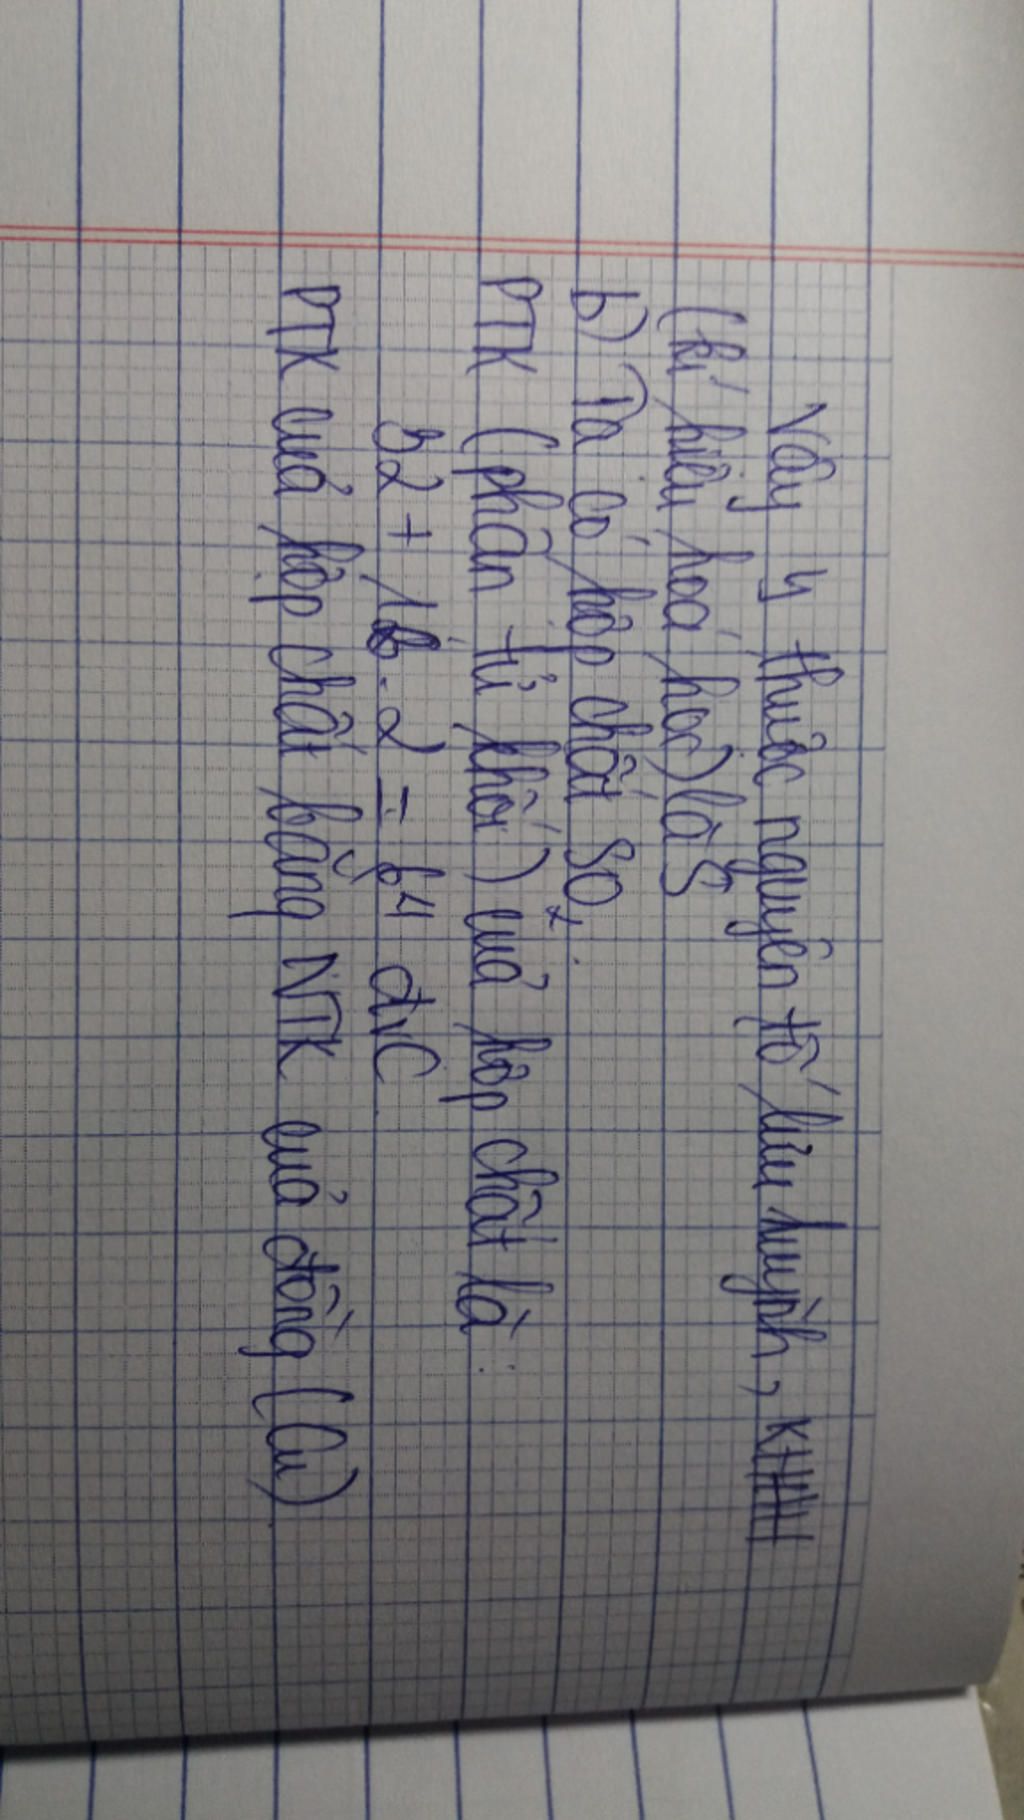 Vậy y thuộc nguyên tố lưu huỳnh, KHHH
(kí hiệu hoá học) là S
b) Ta có hợp chất SO₂.
PTK (phân tử khối) của hợp chất là:
32 + 16.2 = 64 đvC
PTK của hợp chất bằng NTK của đồng (Cu)